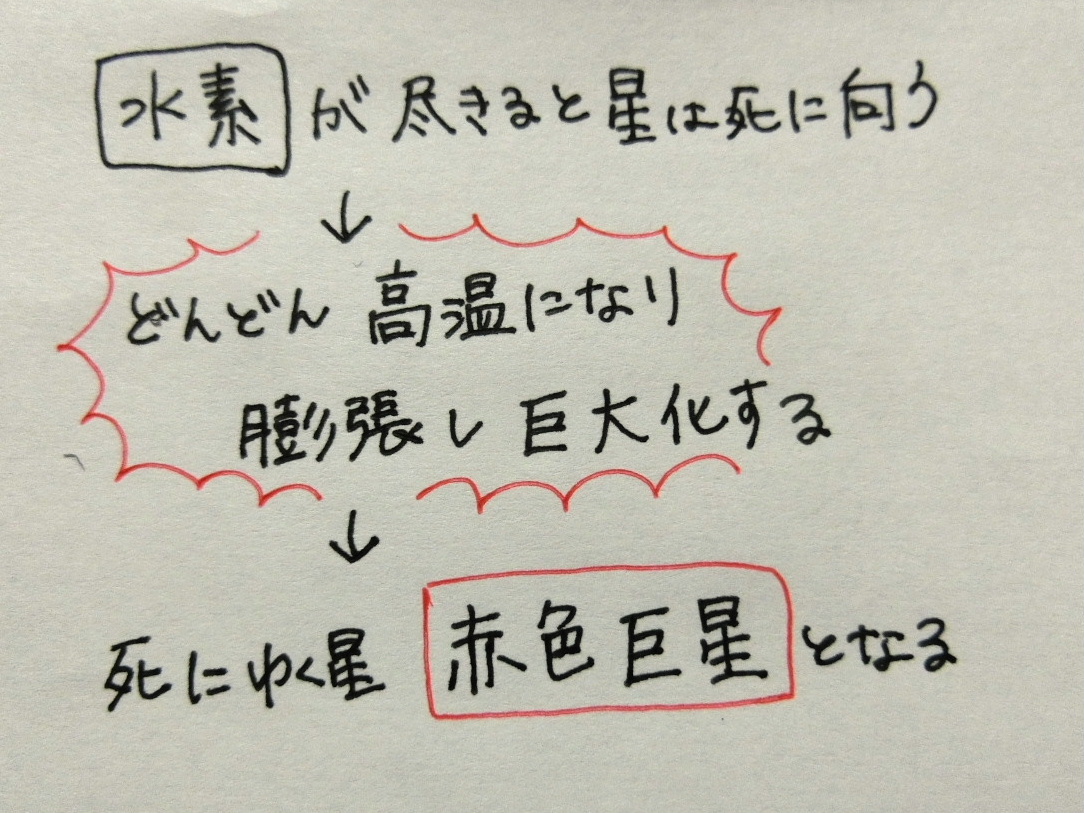 水素が尽きると星は死に向う
↓
どんどん高温になり
膨張し巨大化する
↓
死にゆく星 赤色巨星となる